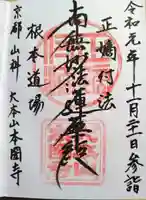 令和元年十一月二十一日参詣
正嫡付法
南無妙法蓮華経
根本道場
京都 山科 大本山本圀寺